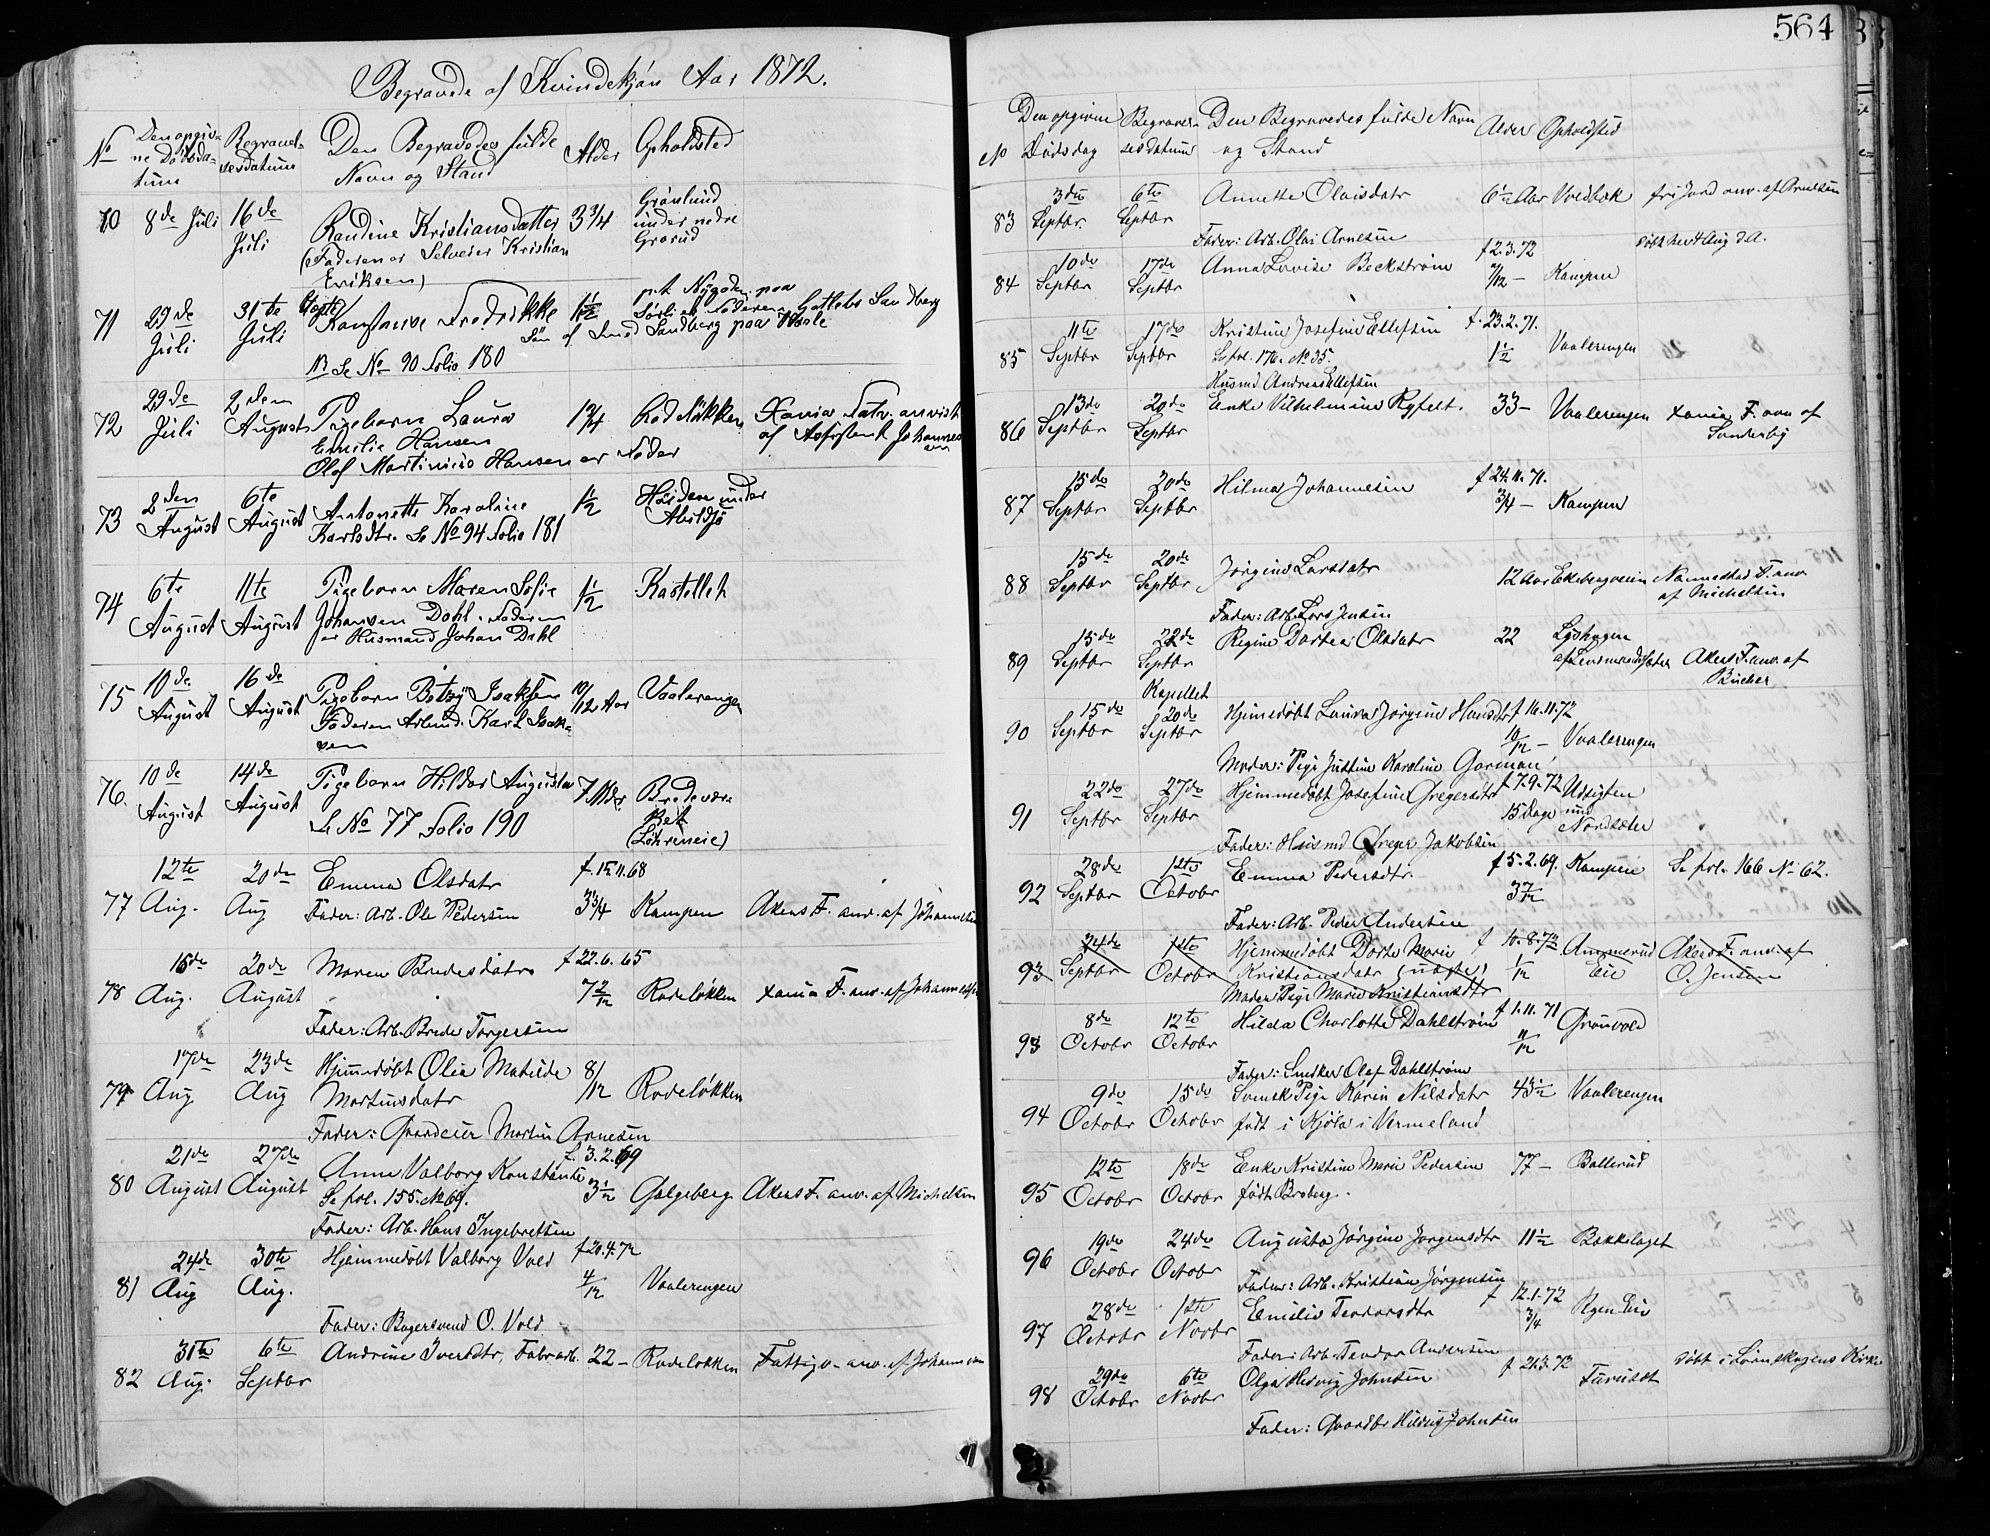 Begravede af Kvindekjøn Aar 1872.
No Den opgivne Dødsdatum Begravelsesdatum Den Begravedes fulde Navn og Stand Alder Opholdsted
70 8de Juli 16de Juli Randine Kristiansdatter 3 3/4 Grønlund under nedre Grorud
(Faderen er Selveier Kristian Eriksen)
71 29de Juli 31te Juli Konstanse Fredrikke 1 1/2
NB Se No 90 Folio 180
72 29de Juli 2den August Pigebarn Laura 1 3/4 Rodeløkken Xania Fatv. anvist
Emilie Hansen af Assistent Johannesen
Olaf Martinius Hansen er Fader
73 2den August 6te August Antonette Karoline 1/2 Høiden under Abildsø
Karlsdtr. Se No 94 Folio 181
74 6te August 11te August Pigebarn Maren Sofie 1/2 Kastellet
Johansen Dahl. Faderen
er Husmand Johan Dahl
75 10de August 16de August Pigebarn Betzy Isaksen 10/12 Aar Vaalerengen
Faderen Arbmd. Karl Isaksen
76. 10de August 14de August Pigebarn Hilda Augusta 7 Mdr
Se No 77 Folio 190
77 12te Aug. 20de Aug Emma Olsdatr f. 15.11.68 3 3/4 Kampen Akers F. anv. af Johannesen
Fader: Arb. Ole Pedersen
78 16de Aug. 20de August Maren Bredesdatr f 22.6.65 7 2/12 Rodeløkken Xania F. anv. af Johannesen
Fader: Arb. Brede Torgersen
79 17de Aug 23de Aug Hjemmedøbt Olea Matilde 8/12 Rodeløkken
Martinsdatr
Fader: Gaardeier Martin Arnesen
80 21de August 27de August Anna Valborg Konstanse f. 3.2.69 3 1/2 Galgeberg Akers F. anv. af Michelsen
Se fol. 155. No 69.
Fader: Arb. Hans Ingebretsen
81 24de Aug 30te Aug. Hjemmedøbt Valborg Vold f 20.4.72 4/12 Vaalerengen
Fader: Bagersvend O. Vold
82 31te Aug. 6te Septbr Andrine Iversdtr, Fabrarb. 22 - Rodeløkken Fattigv. anv. af Johannesen
564
No Den opgivne Dødsdag Begravelsesdatum Den Begravedes fulde Navn og Stand Alder Opholdsted
83 3die Septbr. 6te Septbr Annette Olaisdatr 6 1/2 Aar Voldløk fri Jord anv. af Arnesen
Fader: Arb. Olai Arnesen
84 10de Septbr 17de Septbr Anna Lovise Beckstrøm f 2.3.72 Kampen døbt den 4 Aug d.A.
85 11te Septbr 17de Septbr Kristine Josefine Ellefsen f. 23.2.71. 1 1/2 Vaalerengen
Se fol. 176. No 35.
Husmd Andreas Ellefsen
86 13de Septbr 20de Septbr Enke Vilhelmine Ryfelt. 33 - Vaalerengen Xania F. anv af Sønderby
87 15de Septbr 20de Septbr Hilma Johannesen f 24.11.71. 3/4 - Kampen
88 15de Septbr 20de Septbr Jørgine Larsdatr 12 Aar Ekebergveien Nannestad F. anv. af Michelsen
Fader: Arb. Lars Jensen
89 15de Septbr 22de Septbr Regine Dortea Olsdatr 22 Akers F. anv. af Bücher
90 15de Septbr Kapellet 20de Septbr Hjemedøbt Laura Jørgine Hansdtr f 16.11.72 10/12 - Vaalerengen
Moder: Pige Justine Karoline Gorman
91 22de Septbr 27de Septbr Hjemmedøbt Josefine Gregersdtr f 7.9.72 15 Dage Udsigten und Nordsæter
Fader: Husmd Greger Jakobsen
92 28de Septbr 1ste Octobr Emma Pedersdtr. f 5.2.69. 3 7/12 Kampen Se fol. 166 No 62.
Fader: Arb. Peder Andersen
93 24de Septbr 1ste Octobr Hjemmedøbt Dorte Marie f 10.8.72 1/12 Ammerud Eie Akers F. anv. af O. Jensen
Kristiansdatr (uægte)
Moder Pige Marie Kristiansdtr
93 8de Octobr 12te Octobr Hilda Charlotte Dahlstrøm f 1.11.71 11/12 Grønvold
Fader: Snedker Olaf Dahlstrøm
94 9de Octobr 15de Octobr Svensk Pige Karin Nilsdatr 43 1/2 Vaalerengen
født i Kjøla i Vermeland
95 12te Octobr 18de Octobr Enke Kristine Marie Pedersen 77 - Ballerud
født Broberg.
96 19de Octobr 24de Octobr Augusta Jørgine Jørgensdtr 11 1/2 Bækkelaget
Fader: Arb. Kristian Jørgensen
97 28de Octobr 1ste Novbr Emilie Teodorsdtr f 12.1.72 3/4 Ryen Eie
Fader: Arb. Teodor Andersen
98 29de Octobr 6te Novbr Olga Hedvig Johnsen f 21.3.72 Furuset døbt i Lørenskogens Kirke
Fader: Gaardbr Johnsen